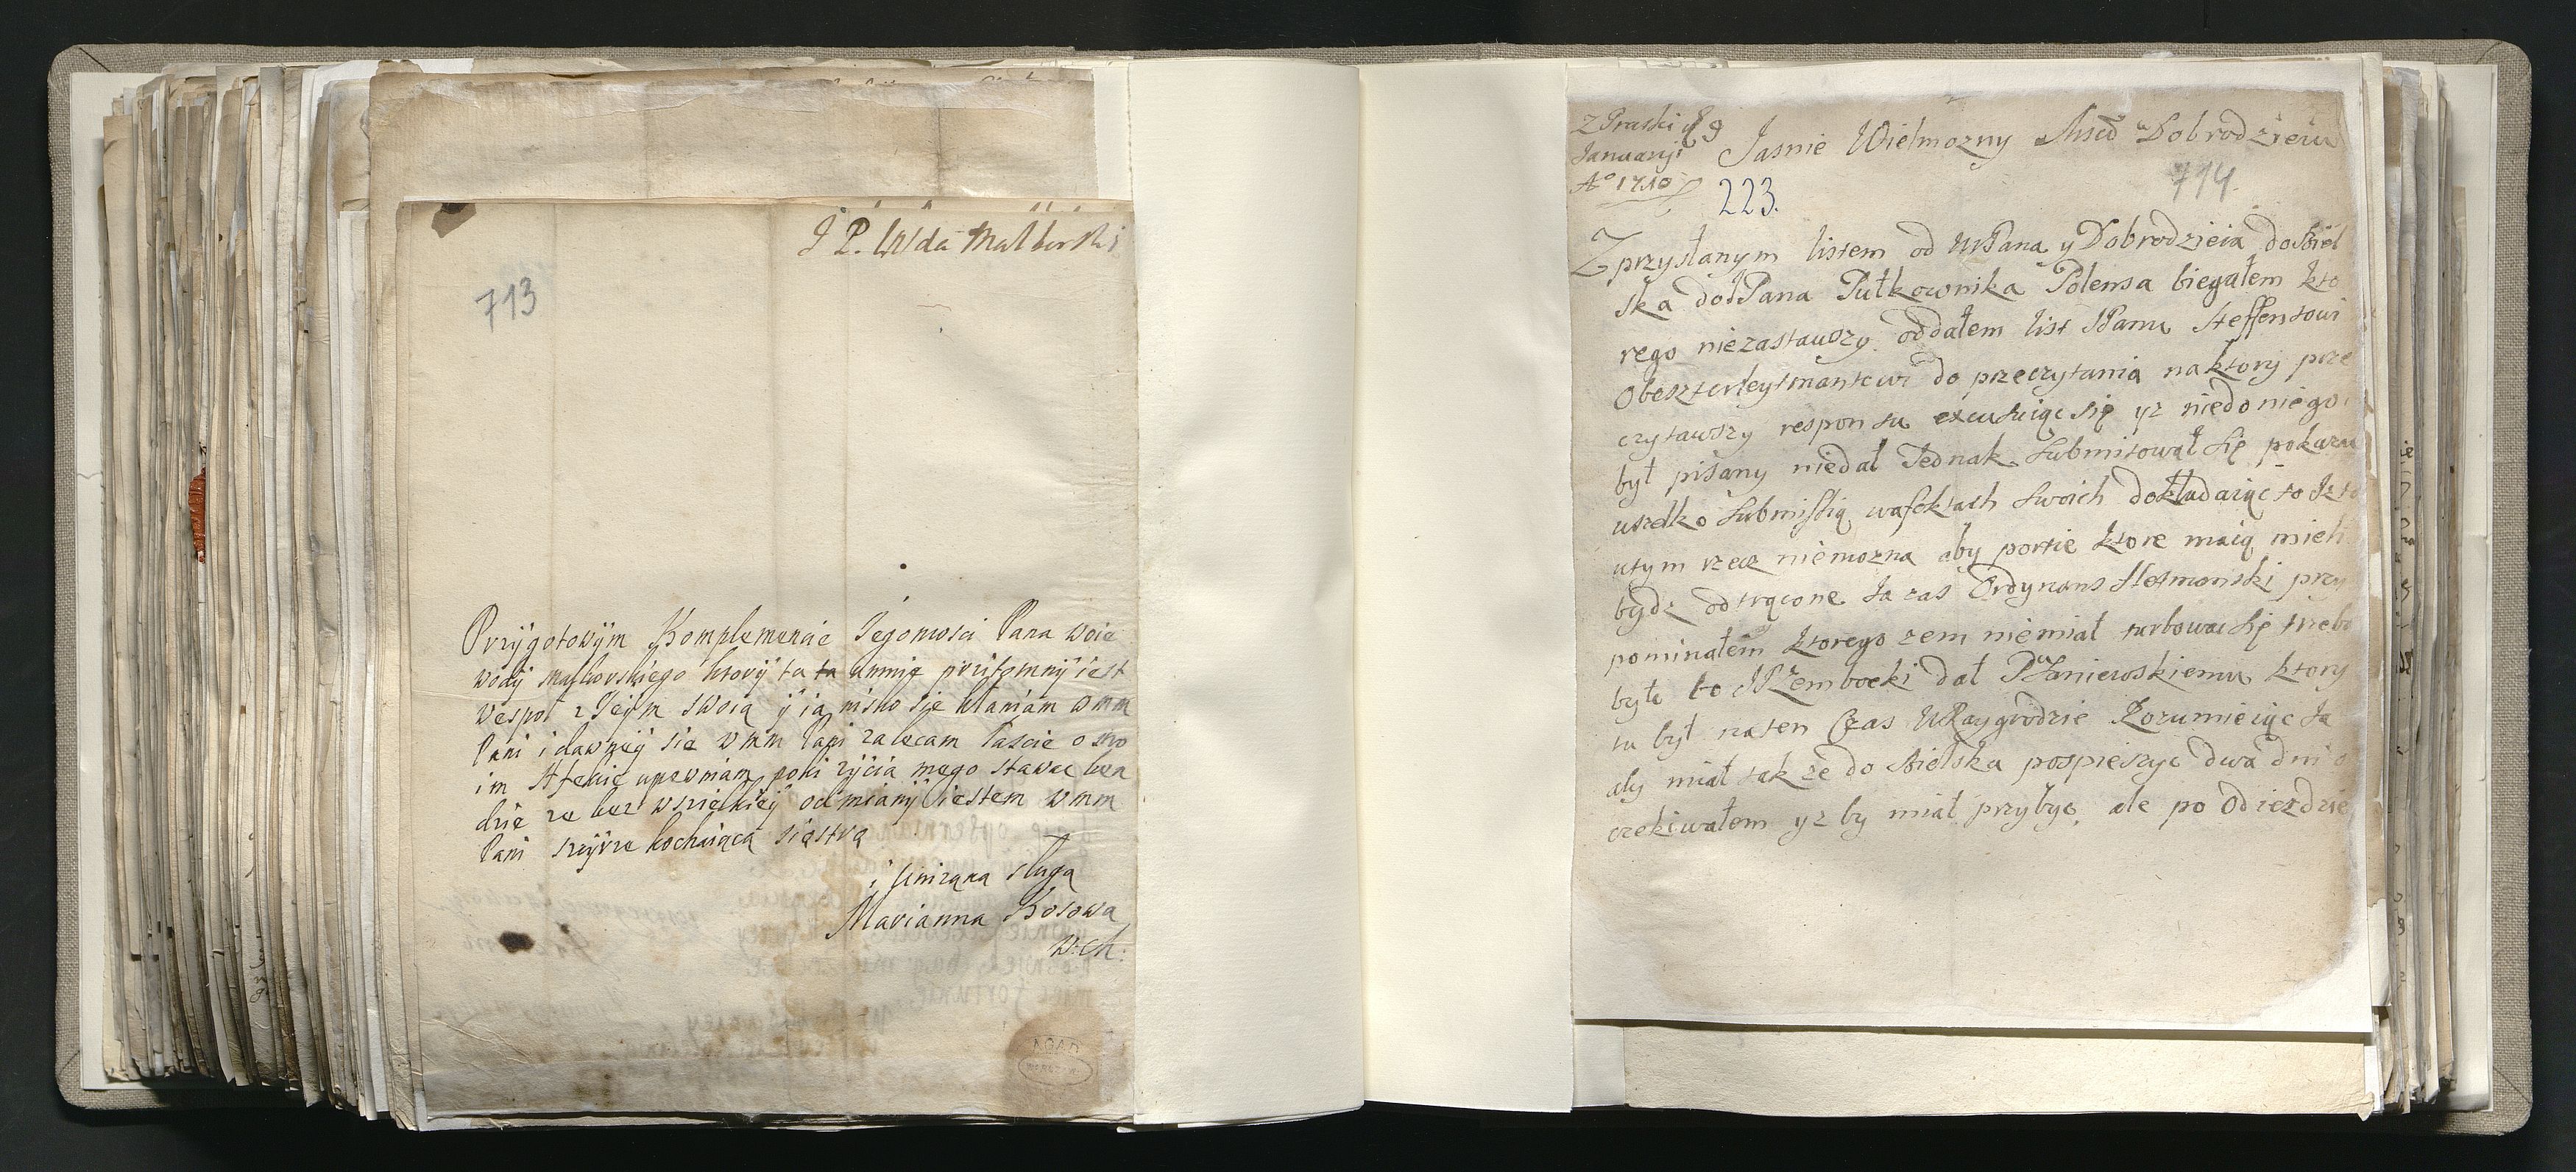 J P. Wda Malborski
713
Przÿgotowÿm Komplemencie Jegomosci Pana woie
wodÿ Malborskiego ktorÿ ta ta umnię prizitomnÿ iest
wespoł z Jeÿm swoią ÿ ia nisko się kłaniam wmm
Pani i dawnÿ sie wmm Pani zalecam łascie o swo
im Afekcie upewniam poki zÿcia mego stawac bęn
dzie ze bez wszielkieÿ odmianÿ iestem wmm
Pani szczÿrze kochaiąca siostra
i uniżąna sługa
Marianna Kosowa
W:Ch:
AGAD
Z Praski d 9
Januarÿ
A° 1710
Jasnie Wielmozny Msci Dobrodzieiu
223.
714.
Z przysłanym listem od WPana y Dobrodzieia do Biel
ska do JPana Pułkownika Polensa biegałem kto
rego niezastawszy oddałem list JPanu Steffensowi
Obeszterleytmantowi do przeczytania na ktory prze
czytawszy responsu excusuiąc się yz niedoniego
był pisany niedał Jednak submitował się pokazac
wszelko submissią wafektach swoich dokładaiąc to Jz to
wtym rzecz niemozna aby portie ktore maią mieli
bydz odtrącone Ja zas Ordynans Hetmanski przy
pominałem ktorego zem niemiał turbowac się trzeba
było bo JP Zembocki dał P Janiewskiemu ktory
tu był naten Czas WRaygrodzie Rozumieiąc Ja
aby miał tak ze do Bielska pospieszyc dwa dni o
czekiwałem yz by miał przybyc, ale po Odiezdzie